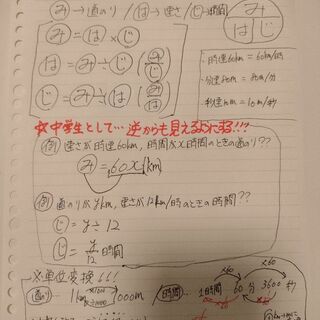 み→道のり / は→速さ / じ→時間
み
は じ
み = は × じ
は = み ÷ じ (み/じ)
じ = み ÷ は (み/は)
・時速60km = 60km/時
・分速80m = 80m/分
・秒速10m = 10m/秒
☆中学生として…逆からも見えるようにする!!!
例 速さが時速60km, 時間がx時間のときの道のり??
み = 60x (km)
例 道のりがykm, 速さが12km/時のときの時間??
じ = y ÷ 12
じ = y/12 時間
※単位変換!!!
道のり … 1km 1000m / 時間 … 1時間 60分 3600秒
×1000
÷1000
×60
×60